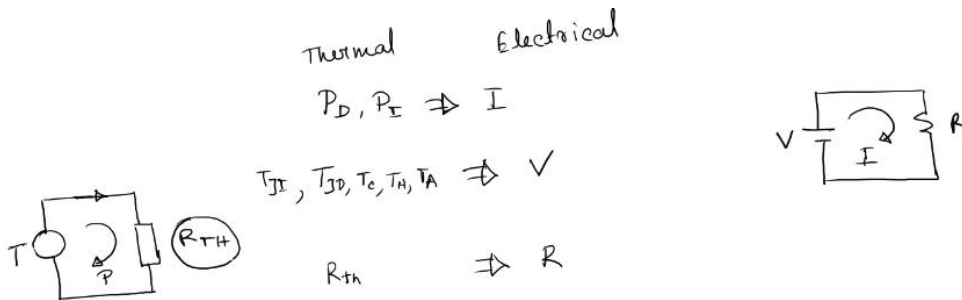 Thermal Electrical
P_D, P_I ⇒ I
T_JI, T_JD, T_C, T_H, T_A ⇒ V
R_th ⇒ R
T P R_TH
V I R